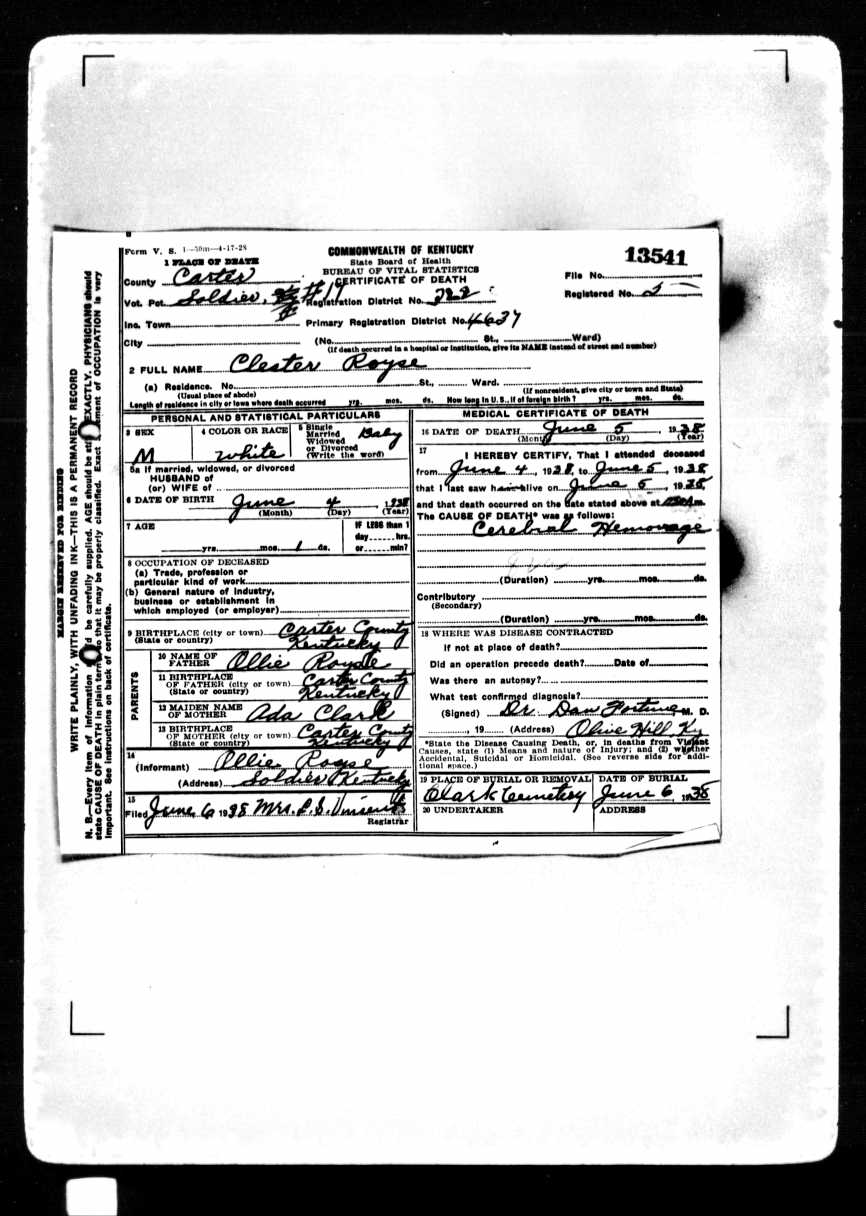 Form V. S. 1—50m—4-17-28
COMMONWEALTH OF KENTUCKY
State Board of Health
BUREAU OF VITAL STATISTICS
CERTIFICATE OF DEATH
13541
File No.
Registered No. 5
1 PLACE OF DEATH
County Carter
Vot. Pct. Soldier, #11
Registration District No.
Inc. Town
Primary Registration District No. 4637
City (No. St., Ward)
(If death occurred in a hospital or institution, give its NAME instead of street and number)
2 FULL NAME Clester Royse
(a) Residence. No. St., Ward.
(Usual place of abode) (If nonresident, give city or town and State)
Length of residence in city or town where death occurred yrs. mos. ds. How long in U. S., if of foreign birth? yrs. mos. ds.
PERSONAL AND STATISTICAL PARTICULARS
3 SEX M
4 COLOR OR RACE white
5 Single
Married
Widowed
or Divorced
(Write the word) Baby
5a If married, widowed, or divorced
HUSBAND of
(or) WIFE of
6 DATE OF BIRTH June 4, 1938
(Month) (Day) (Year)
7 AGE
yrs. mos. 1 ds.
IF LESS than 1
day hrs.
or min?
8 OCCUPATION OF DECEASED
(a) Trade, profession or
particular kind of work
(b) General nature of industry,
business or establishment in
which employed (or employer)
9 BIRTHPLACE (city or town) Carter County
(State or country) Kentucky
PARENTS
10 NAME OF
FATHER Ollie Royse
11 BIRTHPLACE
OF FATHER (city or town) Carter County
(State or country) Kentucky
12 MAIDEN NAME
OF MOTHER Ada Clark
13 BIRTHPLACE
OF MOTHER (city or town) Carter County
(State or country) Kentucky
14
(Informant) Ollie Royse
(Address) Soldier Kentucky
15
Filed June 6 1938 Mrs.
Registrar
MEDICAL CERTIFICATE OF DEATH
16 DATE OF DEATH June 5, 1938
(Month) (Day) (Year)
17
I HEREBY CERTIFY, That I attended deceased
from June 4, 1938, to June 5, 1938
that I last saw h alive on June 5, 1938
and that death occurred on the date stated above at m.
The CAUSE OF DEATH* was as follows:
Cerebral Hemorage
(Duration) yrs. mos. ds.
Contributory
(Secondary)
(Duration) yrs. mos. ds.
18 WHERE WAS DISEASE CONTRACTED
If not at place of death?
Did an operation precede death? Date of
Was there an autopsy?
What test confirmed diagnosis?
(Signed) Dr. Dan Fortune M. D.
, 19 (Address) Olive Hill Ky
*State the Disease Causing Death, or, in deaths from Violent
Causes, state (1) Means and nature of Injury; and (2) whether
Accidental, Suicidal or Homicidal. (See reverse side for additional space.)
19 PLACE OF BURIAL OR REMOVAL Clark Cemetery
DATE OF BURIAL June 6, 1938
20 UNDERTAKER
ADDRESS
MARGIN RESERVED FOR BINDING
WRITE PLAINLY, WITH UNFADING INK—THIS IS A PERMANENT RECORD
N. B.—Every item of information should be carefully supplied. AGE should be stated EXACTLY. PHYSICIANS should
state CAUSE OF DEATH in plain terms, so that it may be properly classified. Exact statement of OCCUPATION is very
important. See instructions on back of certificate.